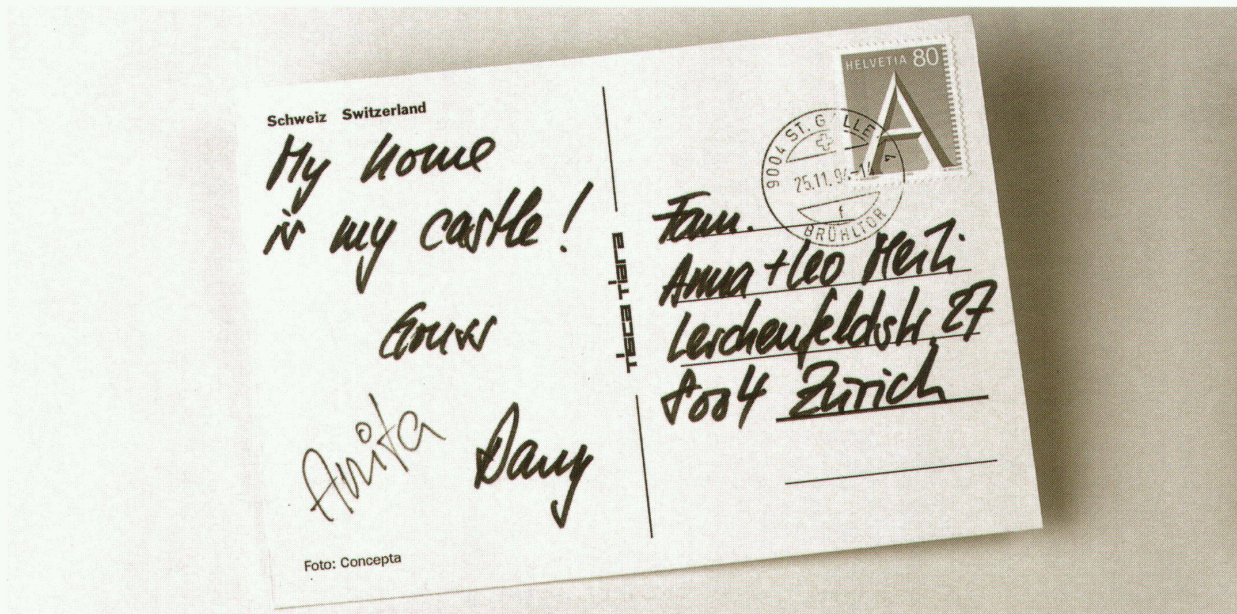 Schweiz Switzerland
My home
is my castle!
Gruss
Anita
Dany
Foto: Concepta
tisca tiara
HELVETIA 80
A
9004 ST. GALLEN 1
25.11.94-14
f
BRÜHLTOR
Fam.
Anna + Leo Meili
Lerchenfeldstr. 27
8004 Zürich